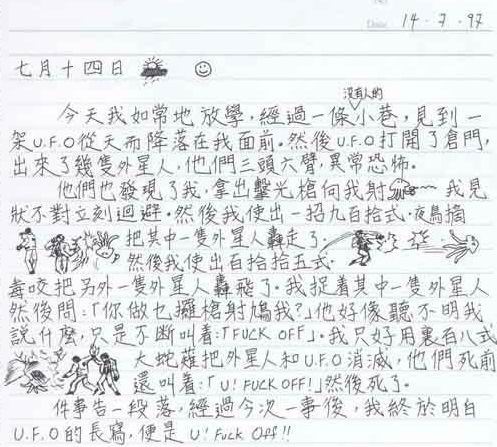 Date 14.7.97
七月十四日
沒有人的
今天我如常地放學,經過一條小巷,見到一
架U.F.O從天而降落在我面前.然後U.F.O打開了倉門,
出來了幾隻外星人,他們三頭六臂,異常恐怖.
他們也發現了我,拿出鐳光槍向我射 我見
狀不對立刻迴避.然後我使出一招九百拾式.夜鳥摘
把其中一隻外星人轟走了.
然後我使出百拾拾五式.
毒咬把另外一隻外星人轟飛了.我捉着其中一隻外星人
然後問:「你做乜攞槍射鳩我?」他好像聽不明我
說什麼,只是不斷叫着:「FUCK OFF」.我只好用裏百八式
大蛇薙把外星人和U.F.O消滅,他們死前
還叫着:「U! FUCK OFF!」然後死了.
件事告一段落,經過今次一事後,我終於明白
U.F.O的長寫,便是U! Fuck Off!!